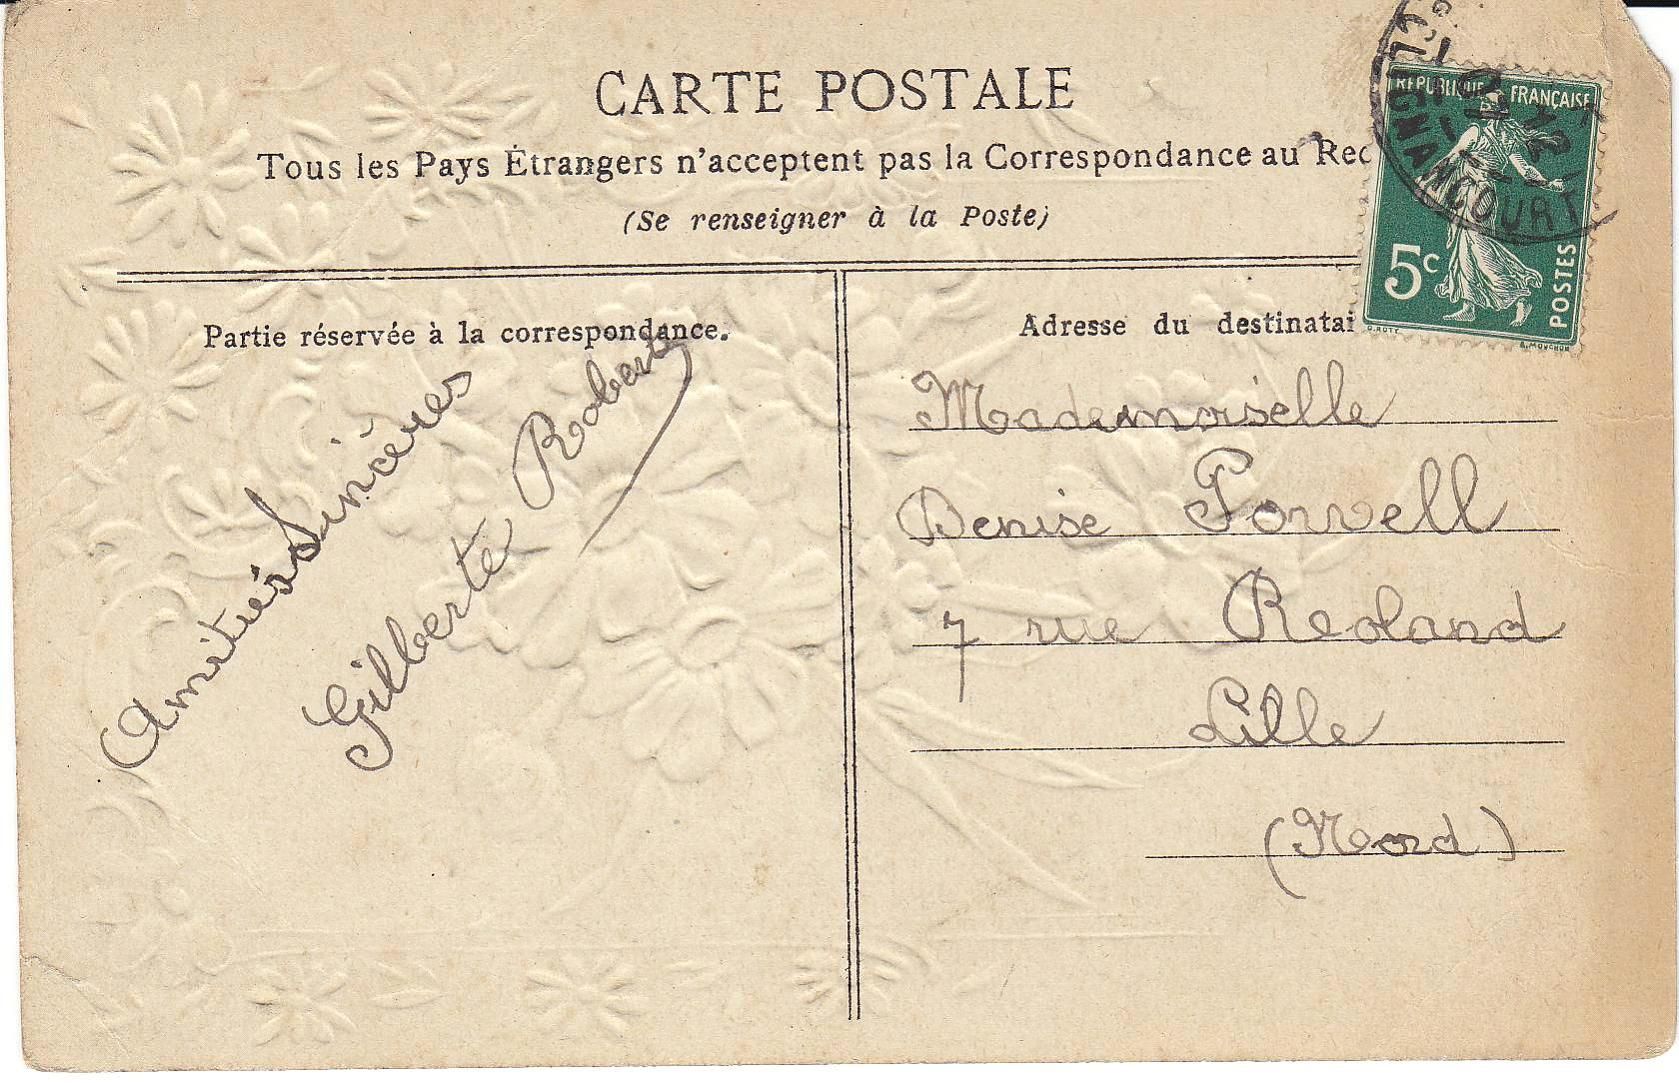 CARTE POSTALE
Tous les Pays Étrangers n'acceptent pas la Correspondance au Rec
(Se renseigner à la Poste)
REPUBLIQUE FRANÇAISE
5c
POSTES
O. ROTY
E. MOUCHON
CLIGNANCOURT
Partie réservée à la correspondance.
Amitiés Sincères
Gilberte Robert
Adresse du destinatai
Mademoiselle
Denise Powell
7 rue Reoland
Lille
(Nord)